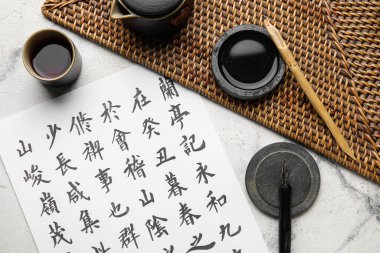 蘭亭記永和九
在癸丑暮春之
於會稽山陰
修禊事也群
少長咸集
山峻嶺茂